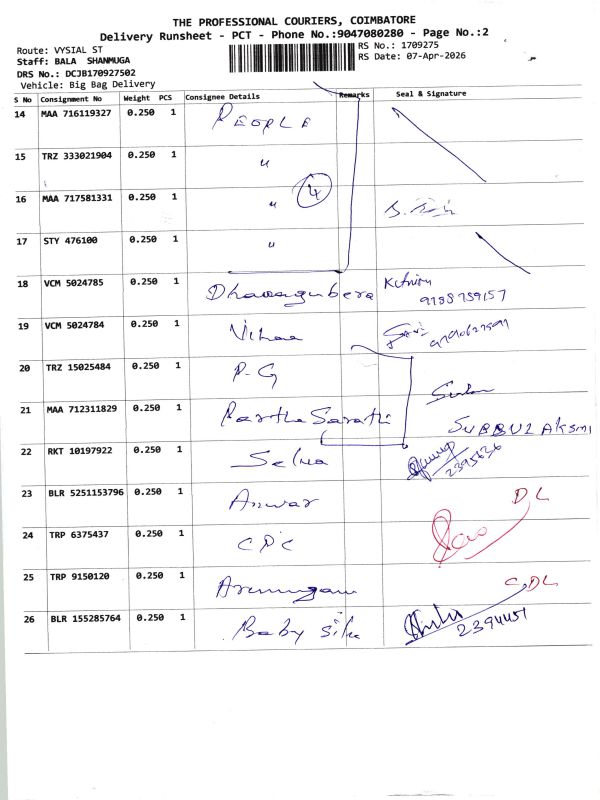 THE PROFESSIONAL COURIERS, COIMBATORE
Delivery Runsheet - PCT - Phone No.:9047080280 - Page No.:2
Route: VYSIAL ST
RS No.: 1709275
Staff: BALA SHANMUGA
RS Date: 07-Apr-2026
DRS No.: DCJB170927502
Vehicle: Big Bag Delivery
S No Consignment No Weight PCS Consignee Details Remarks Seal & Signature
14 MAA 716119327 0.250 1 PEOPLE
15 TRZ 333021904 0.250 1 "
4
16 MAA 717581331 0.250 1 "
17 STY 476100 0.250 1 "
18 VCM 5024785 0.250 1
19 VCM 5024784 0.250 1
20 TRZ 15025484 0.250 1 P-G
21 MAA 712311829 0.250 1 Partha Sarathi
22 RKT 10197922 0.250 1 Selva 2395636
23 BLR 5251153796 0.250 1 Anwar DL
24 TRP 6375437 0.250 1 CPC
25 TRP 9150120 0.250 1 Arumugam CDL
26 BLR 155285764 0.250 1 Baby 2394451